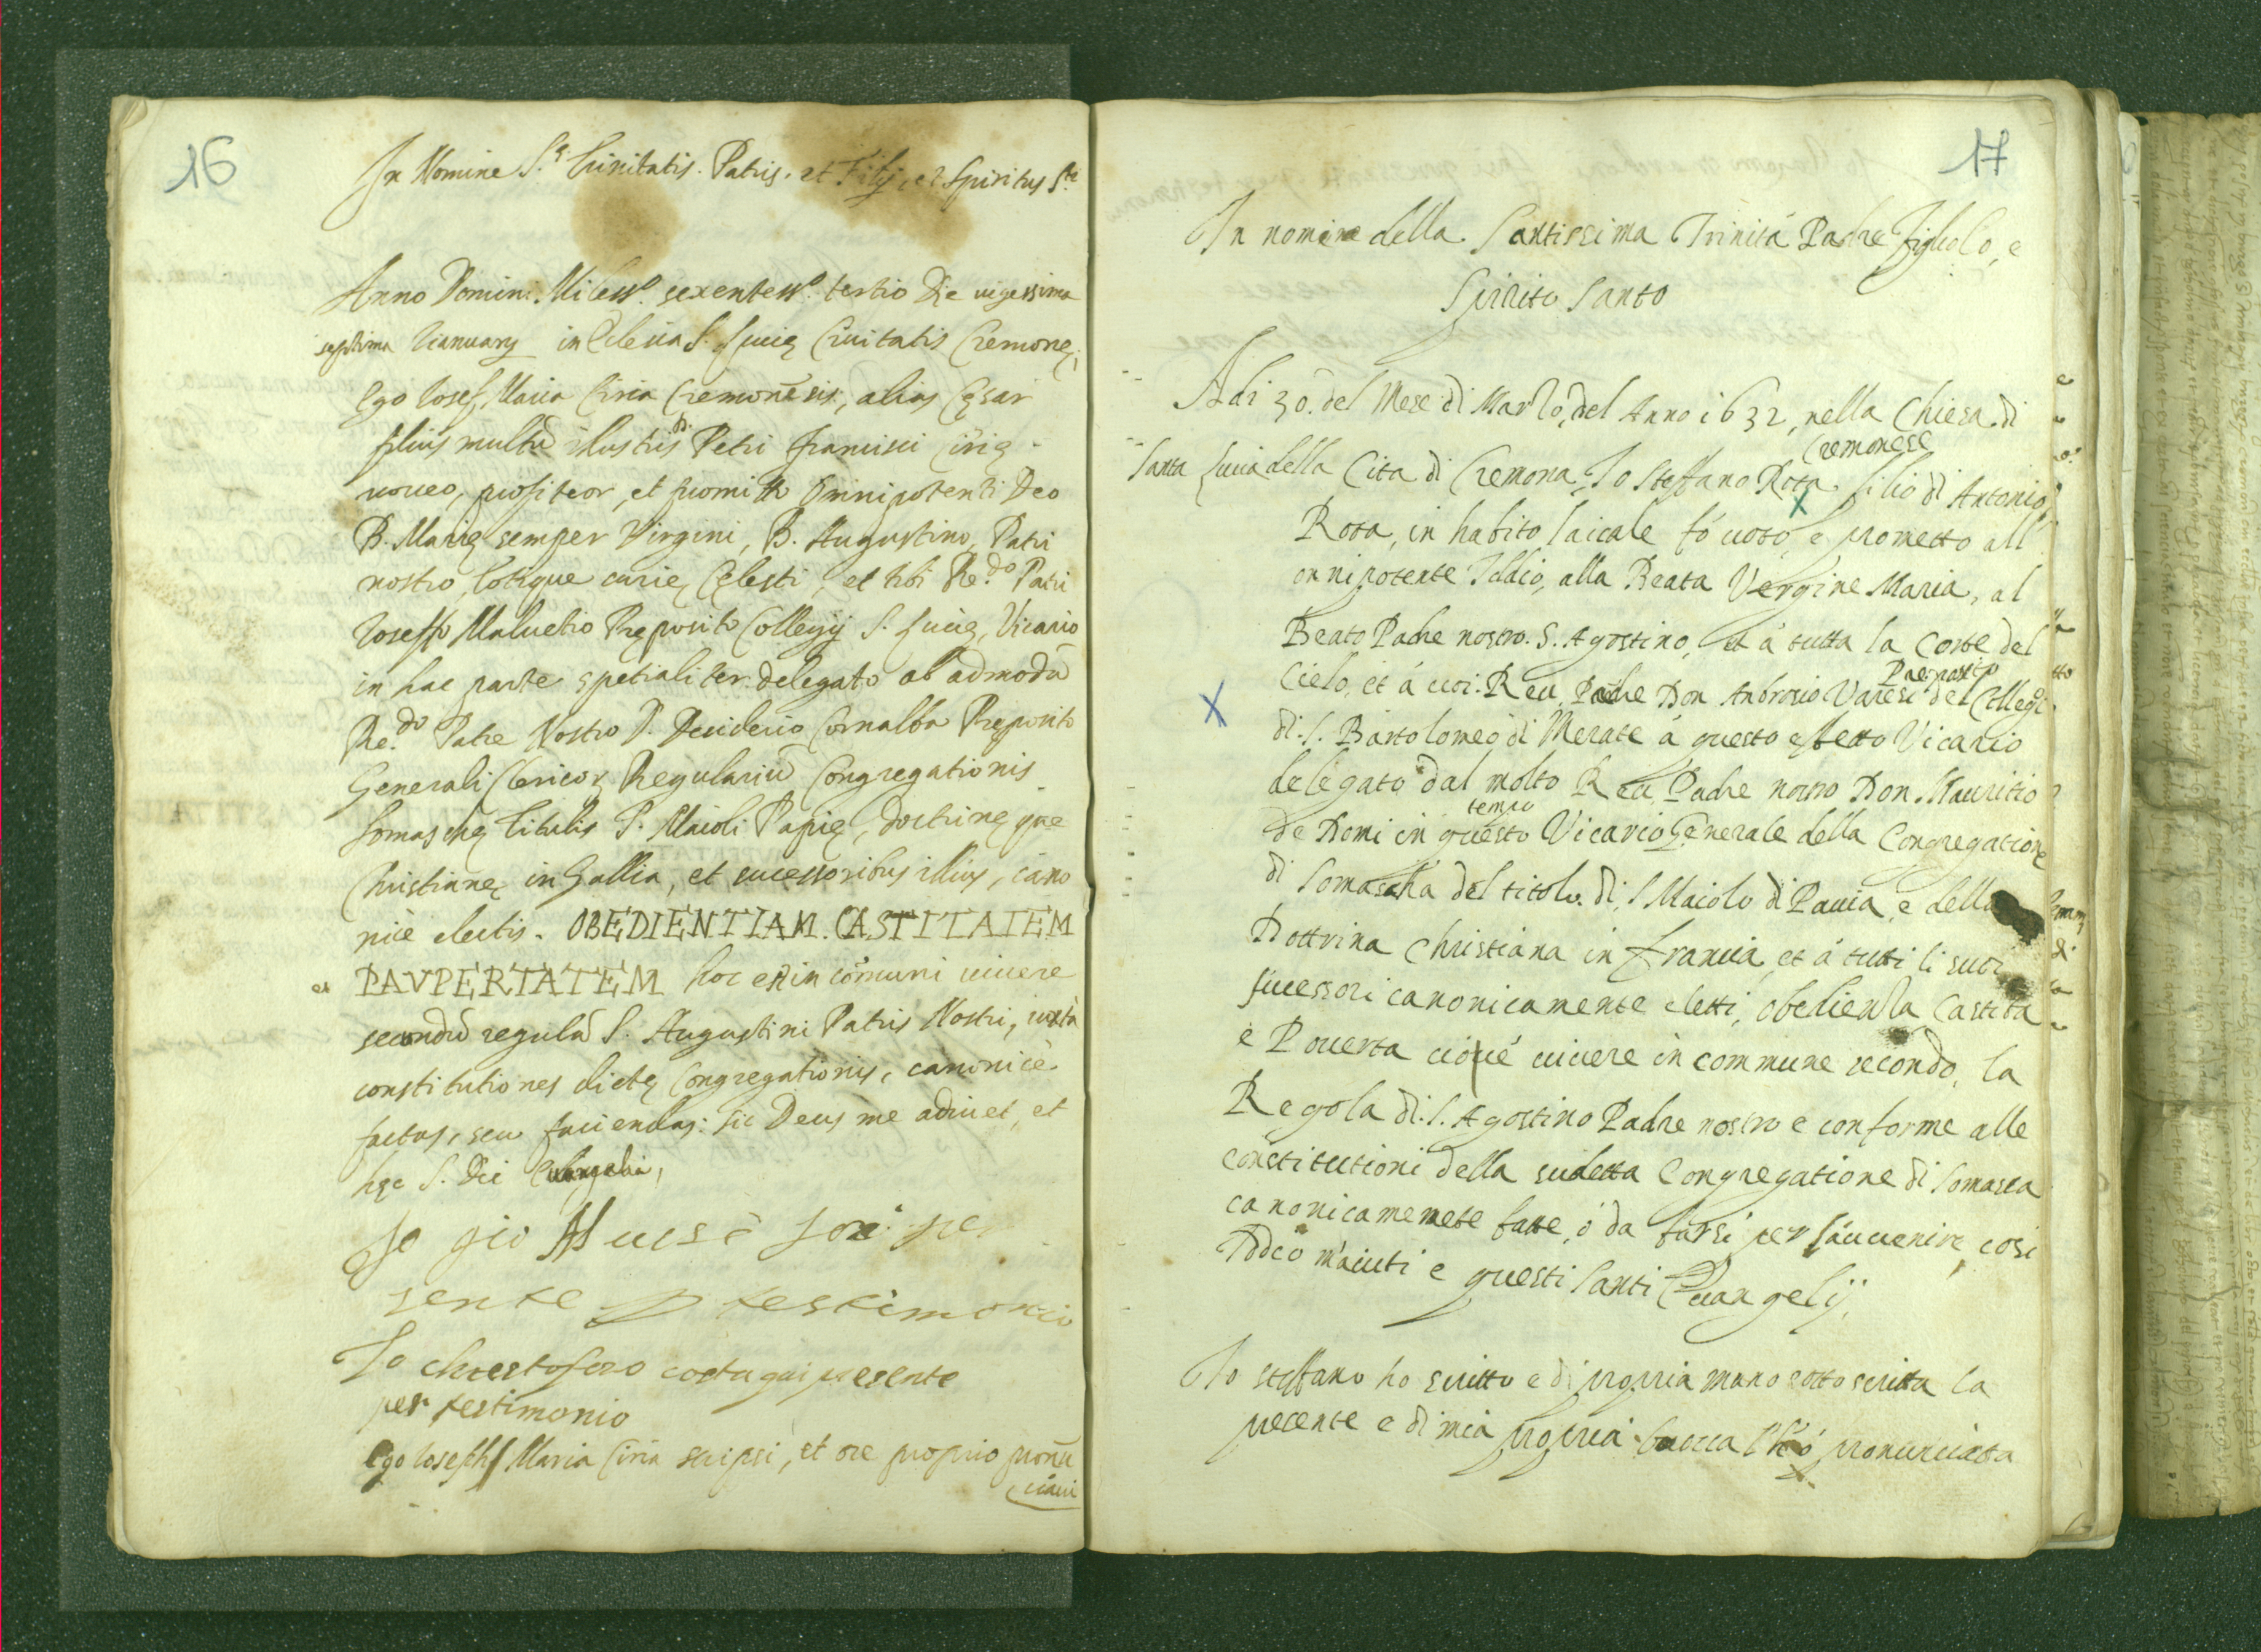 16
In Nomine S.ę Trinitatis. Patris. et Filij, et Spiritus S.ti
Anno Domini Miless.o sexentess.o tertio Die vigessima
septima Januarij in Eclesia S. Lucię Civitatis Cremonę;
Ego Josef Maria Ciria Cremonēsis, alias Cęsar
filius multū illustris D. Petri francisci Cirię.
voveo, profiteor, et promitto Omnipotenti Deo
B. Marię semper Virgini, B. Augustino, Patri
nostro, totique curię Cęlesti, et tibi Re.do Patri
Joseffo Maluetio Pręposito Collegij S. Lucię, Vicario
in hac parte spetialiter delegato ab admodū
Re.do Patre Nostro D. Desiderio Cornalba Pręposito
Generali Clericor. Regulariū Congregationis
Somaschę tituli S. Maioli Papię, doctrinę que
Christianę in Gallia, et sucessoribus illius, cano
nicè electis. OBEDIENTIAM. CASTITATEM
et PAVPERTATEM hoc est in cōmuni vivere
secondū regulā S. Augustini Patris Nostri, iuxtà
constitutiones dictę Congregationis, canonicè
factas, seu faciendas: sic Deus me adiuvet, et
hęc S. Dei Evangelia,
Io gio
sente p testimonio
Io christoforo costa gui presente
per testimonio
Ego Joseph Maria Ciria scripsi, et ore proprio pronū
ciavi
17
In nomine della Santissima Trinità Padre figliolo, e
Spirito Santo
Adi 30. del Mese di Marzo, del Anno 1632, nella Chiesa di
Cremonese
Santa Lucia della Cita di Cremona, Io Steffano Rota filio di Antonio
Rota, in habito laicale fó voto, e prometto all
onnipotente Iddio, alla Beata Vergine Maria, al
Beato Padre nostro. S. Agostino, et á tutta la Corte del
Preposito
Cielo, et á voi. Reu. Padre Don Ambrosio Varesi del Collegi
x
di. S. Bartolomeo di Merate á questo effetto Vicario
delegato dal molto Reu. Padre nostro Don. Mauritio
tempo
De Domi in questo Vicario Generale della Congregatione
di Somascha del titolo. di. S Maiolo di Pavia, e della
Dottrina Christiana in francia, et á tutti li suoi
sucessori canonicamente eletti, obedienza Castita
è Poverta vivere in commune secondo, la
Regola di. S. Agostino Padre nostro e conforme alle
constitutioni della sudetta Congregatione di Somasca
canonicamemete fatte, ó da farsi per l'auuenire, cosi
Iddeo m'aiuti e questi Santi Evangelij,
Io steffano ho scritto e di propria mano sotto scritta la
precente e di mia propria bocca l'hó pronunciata